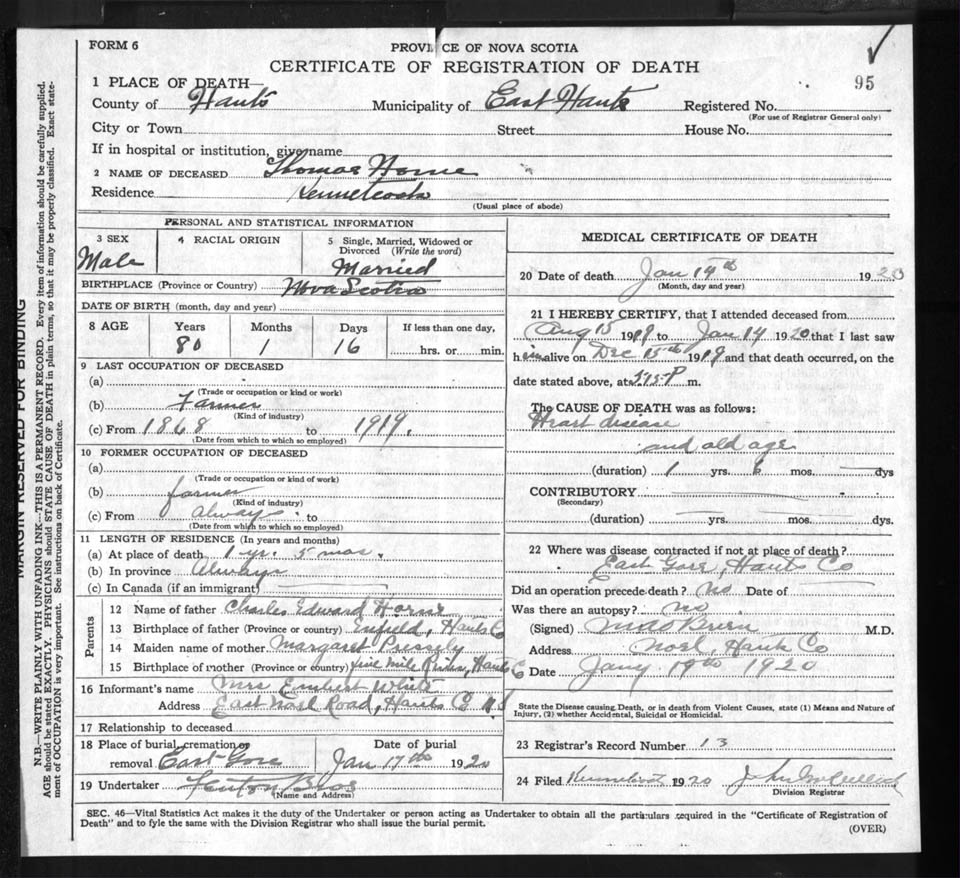 FORM 6
PROVINCE OF NOVA SCOTIA
CERTIFICATE OF REGISTRATION OF DEATH
95
1 PLACE OF DEATH—
County of Hants Municipality of East Hants Registered No.
(For use of Registrar General only)
City or Town Street House No.
If in hospital or institution, give name
2 NAME OF DECEASED Thomas Horne
Residence Kennetcook
(Usual place of abode)
PERSONAL AND STATISTICAL INFORMATION
3 SEX Male
4 RACIAL ORIGIN
5 Single, Married, Widowed or Divorced (Write the word)
Married
BIRTHPLACE (Province or Country) Nova Scotia
DATE OF BIRTH (month, day and year)
8 AGE Years Months Days If less than one day,
80 1 16 hrs. or min.
9 LAST OCCUPATION OF DECEASED
(a)
(Trade or occupation or kind or work)
(b) Farmer
(Kind of industry)
(c) From 1868 to 1919.
(Date from which to which so employed)
10 FORMER OCCUPATION OF DECEASED
(a)
(Trade or occupation or kind of work)
(b) farmer
(Kind of industry)
(c) From always to
(Date from which to which so employed)
11 LENGTH OF RESIDENCE (In years and months)
(a) At place of death 1 yr. 5 mos.
(b) In province always
(c) In Canada (if an immigrant)
Parents
12 Name of father Charles Edward Horne
13 Birthplace of father (Province or country) Enfield, Hants Co
14 Maiden name of mother Margaret
15 Birthplace of mother (Province or country) five mile River, Hants Co
16 Informant's name Mrs White
Address East Noel Road, Hants Co N S
17 Relationship to deceased
18 Place of burial, cremation or removal East Gore
Date of burial Jan 17th 1920
19 Undertaker Bros
(Name and Address)
MEDICAL CERTIFICATE OF DEATH
20 Date of death Jan 14th 1920
(Month, day and year)
21 I HEREBY CERTIFY, that I attended deceased from
Aug 15 1919 to Jan 14 1920 that I last saw
him alive on Dec 15th 1919 and that death occurred, on the
date stated above, at P m.
The CAUSE OF DEATH was as follows:
Heart disease
and old age
(duration) 1 yrs. 6 mos. dys
CONTRIBUTORY
(Secondary)
(duration) yrs. mos. dys.
22 Where was disease contracted if not at place of death?
East Gore, Hants Co
Did an operation precede death? No Date of
Was there an autopsy? no
(Signed) M.D.
Address Noel, Hants Co
Date Jany 19th 1920
State the Disease causing Death, or in death from Violent Causes, state (1) Means and Nature of
Injury, (2) whether Accidental, Suicidal or Homicidal.
23 Registrar's Record Number 13
24 Filed 1920
Division Registrar
SEC. 46—Vital Statistics Act makes it the duty of the Undertaker or person acting as Undertaker to obtain all the particulars required in the "Certificate of Registration of
Death" and to fyle the same with the Division Registrar who shall issue the burial permit.
(OVER)
MARGIN RESERVED FOR BINDING
N.B.—WRITE PLAINLY WITH UNFADING INK—THIS IS A PERMANENT RECORD. Every item of information should be carefully supplied.
AGE should be stated EXACTLY. PHYSICIANS should STATE CAUSE OF DEATH in plain terms, so that it may be properly classified. Exact state-
ment of OCCUPATION is very important. See instructions on back of Certificate.